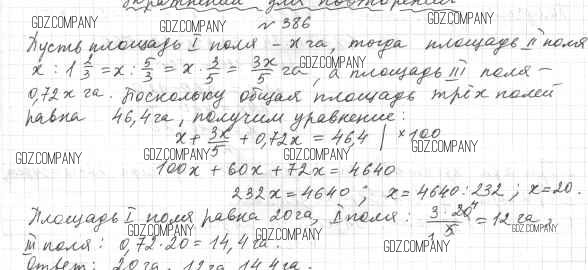 Упражнения для повторения
GDZ.COMPANY GDZ.COMPANY
№ 386
Пусть площадь I поля – x га, тогда площадь II поля
x : 1 2/3 = x : 5/3 = x · 3/5 = 3x/5 га, а площадь III поля –
GDZ.COMPANY GDZ.COMPANY
0,72x га. Поскольку общая площадь трёх полей
равна 46,4 га, получим уравнение:
x + 3x/5 + 0,72x = 46,4 | ×100
GDZ.COMPANY GDZ.COMPANY GDZ.COMPANY
100x + 60x + 72x = 4640
232x = 4640 ; x = 4640 : 232 ; x = 20.
Площадь I поля равна 20 га, II поля : 3 · 20/5 = 12 га,
GDZ.COMPANY GDZ.COMPANY GDZ.COMPANY
III поля : 0,72 · 20 = 14,4 га.
Ответ: 20 га, 12 га, 14,4 га.